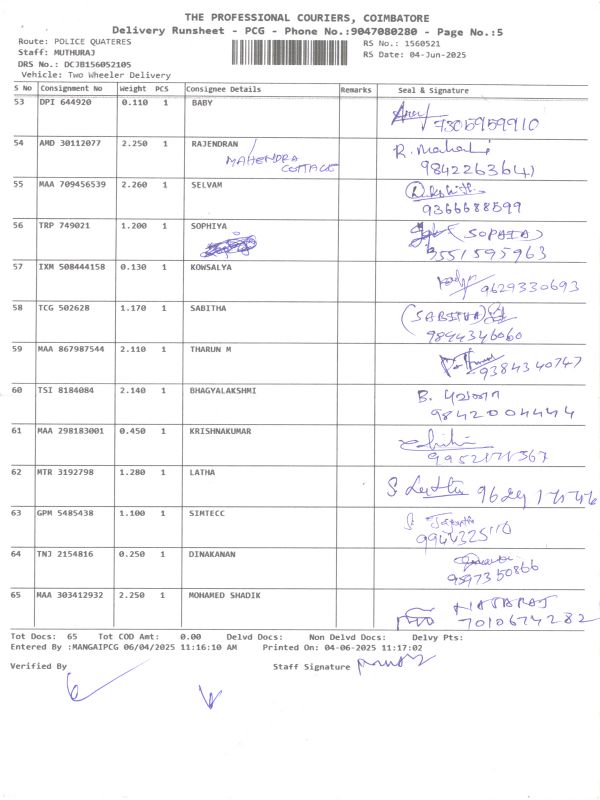 THE PROFESSIONAL COURIERS, COIMBATORE
Delivery Runsheet - PCG - Phone No.:9047080280 - Page No.:5
Route: POLICE QUATERES
RS No.: 1560521
Staff: MUTHURAJ
RS Date: 04-Jun-2025
DRS No.: DCJB156052105
Vehicle: Two Wheeler Delivery
S No Consignment No Weight PCS Consignee Details Remarks Seal & Signature
53 DPI 644920 0.110 1 BABY
7305959910
54 AMD 30112077 2.250 1 RAJENDRAN R. Mahali
MAHENDRA COTTAGE
9842263641
55 MAA 709456539 2.260 1 SELVAM
9366688599
56 TRP 749021 1.200 1 SOPHIYA (SOPHIA)
9551595963
57 IXM 508444158 0.130 1 KOWSALYA
9629330693
58 TCG 502628 1.170 1 SABITHA (SABITHA)
9894346060
59 MAA 867987544 2.110 1 THARUN M
9384340747
60 TSI 8184084 2.140 1 BHAGYALAKSHMI B.
9842004444
61 MAA 298183001 0.450 1 KRISHNAKUMAR
9952171567
62 MTR 3192798 1.280 1 LATHA S. Latha
63 GPM 5485438 1.100 1 SIMTECC
9944325110
64 TNJ 2154816 0.250 1 DINAKANAN
9597350866
65 MAA 303412932 2.250 1 MOHAMED SHADIK NATARAJ
7010674282
Tot Docs: 65 Tot COD Amt: 0.00 Delvd Docs: Non Delvd Docs: Delvy Pts:
Entered By :MANGAIPCG 06/04/2025 11:16:10 AM Printed On: 04-06-2025 11:17:02
Verified By Staff Signature